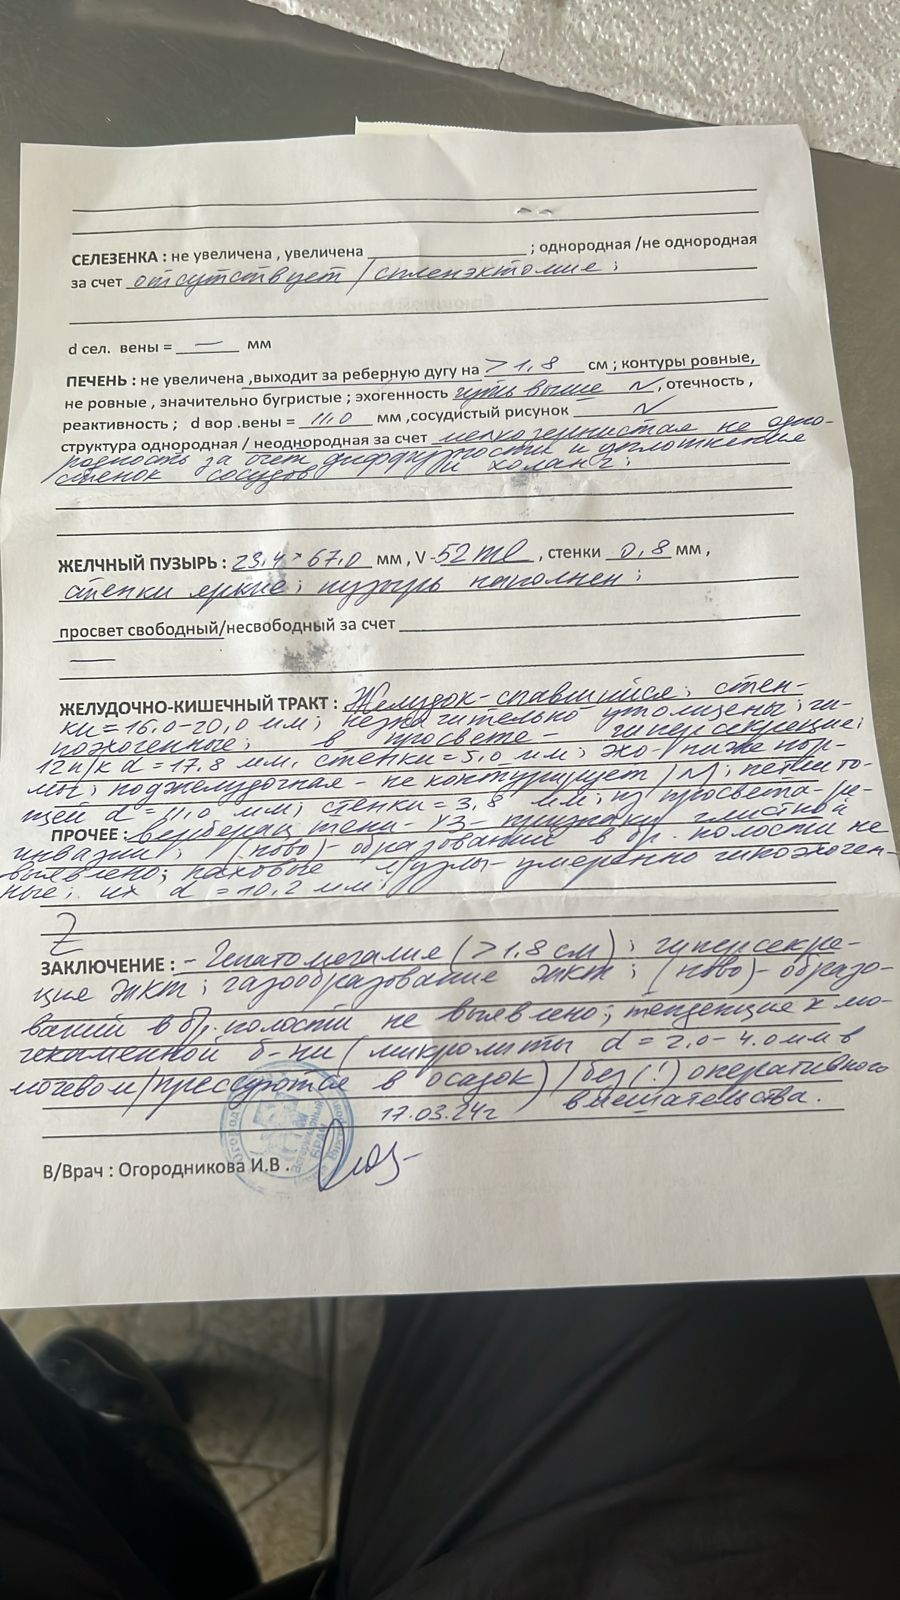 СЕЛЕЗЕНКА : не увеличена , увеличена ; однородная /не однородная
за счет отсутствует / спленэктомия ;
d сел. вены = — мм
ПЕЧЕНЬ : не увеличена ,выходит за реберную дугу на >1,8 см ; контуры ровные,
не ровные , значительно бугристые ; эхогенность чуть выше N , отечность ,
реактивность ; d вор .вены = 11,0 мм ,сосудистый рисунок N
структура однородная / неоднородная за счет мелкозернистая не одно-
родность за счет диффузности и уплотнение
стенок сосудов и холанг ;
ЖЕЛЧНЫЙ ПУЗЫРЬ : 23,4 × 67,0 мм , V -52 ml , стенки 0,8 мм ,
стенки яркие ; пузырь наполнен ;
просвет свободный/несвободный за счет
—
ЖЕЛУДОЧНО-КИШЕЧНЫЙ ТРАКТ : Желудок - спавшийся ; стен-
ки = 16,0-20,0 мм ; незначительно утолщены ; ги-
поэхогенные ; в просвете - гиперсекреция ;
12п/к d = 17,8 мм, стенки = 5,0 мм ; эхо- ниже нор-
мы ; поджелудочная - не контурирует /N ; петли то-
щей d = 11,0 мм ; стенки = 3,8 мм ; из просвета - ре-
ПРОЧЕЕ : верберац тени - УЗ - признаки глистной
инвазии ; (ново) - образований в бр. полости не
выявлено ; паховые л/узлы - умеренно гипоэхоген-
ные ; их d = 10,2 мм
Z
ЗАКЛЮЧЕНИЕ : - Гепатомегалия (>1,8 см) ; гиперсекре-
ция ЖКТ ; газообразование ЖКТ ; (ново) - образо-
ваний в бр. полости не выявлено ; тенденция к мо-
чекаменной б-ни (микролиты d = 2,0 - 4,0 мм в
мочевом/прессуются в осадок) / без (!) оперативного
17.03.24г вмешательства.
В/Врач : Огородникова И.В .